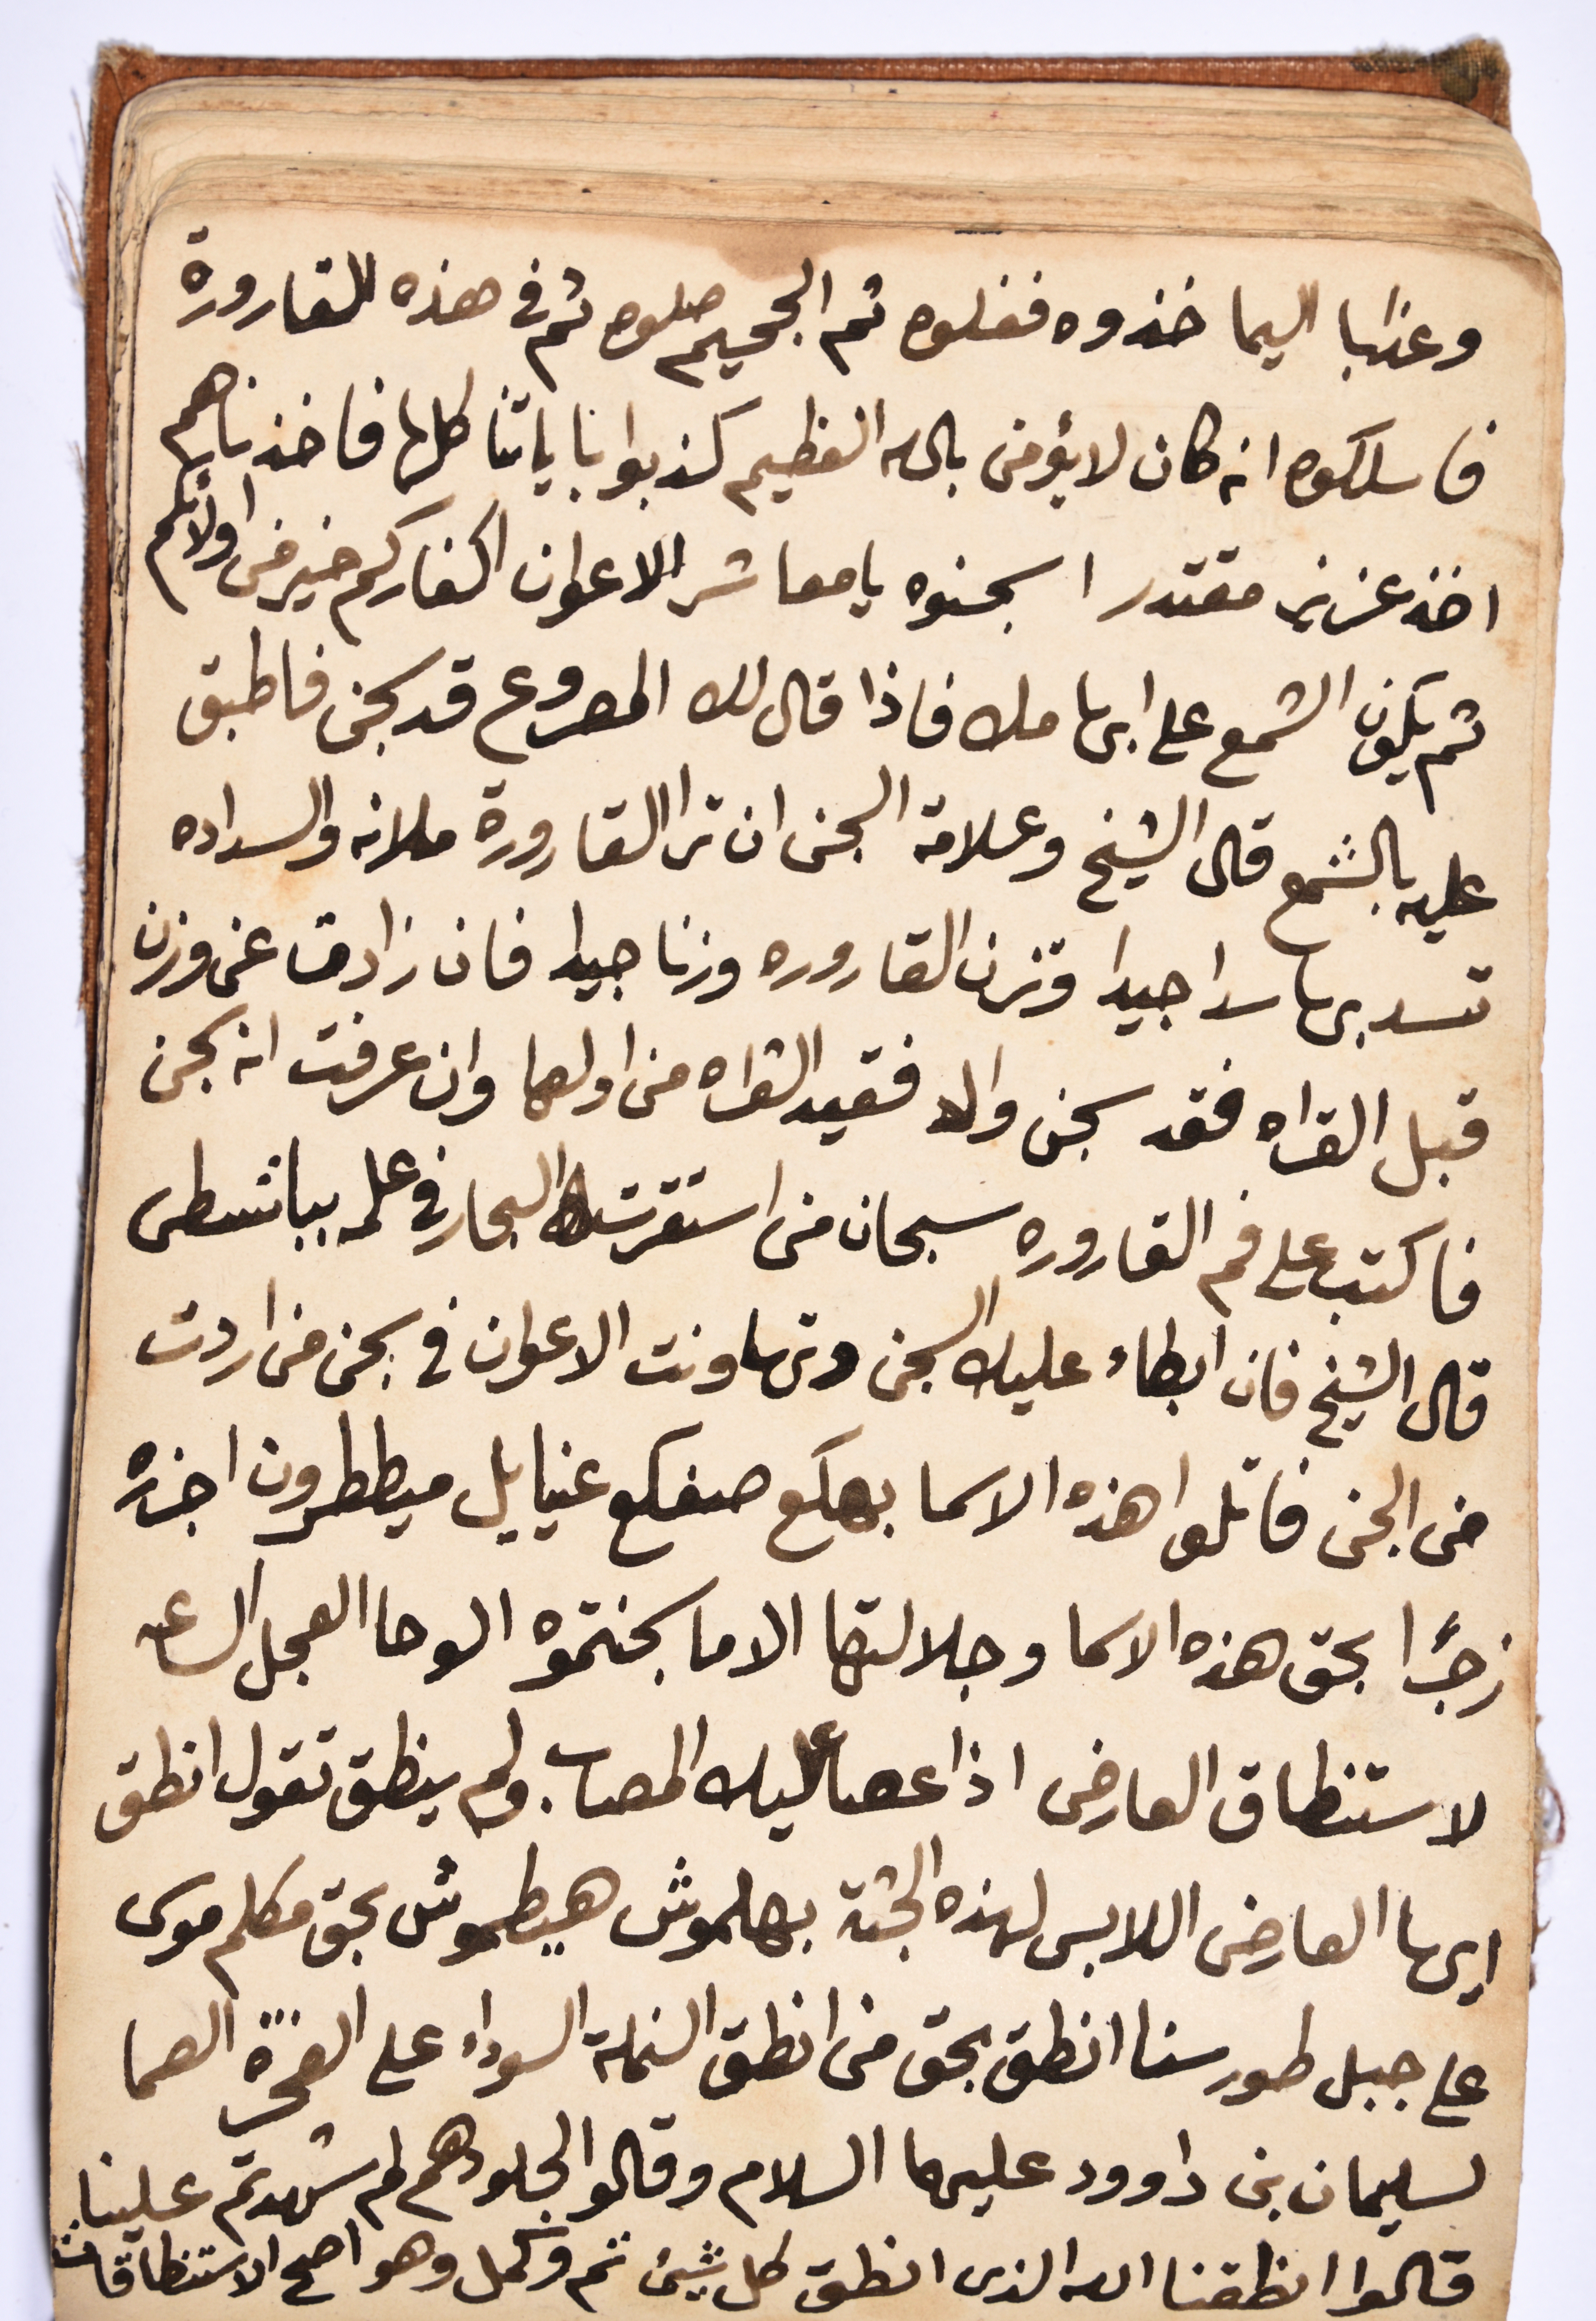 وعذابا اليما خذوه فغلوه ثم الجحيم صلوه ثم في هذه القارورة
فاسلكوه انه كان لا يؤمن بالله العظيم كذبوا باياتنا كلها فاخذناهم
اخذ عزيز مقتدر اسجنوه يا معاشر الاعوان اكفاركم خير من اولائكم
ثم يكون الشمع على ابهامك فاذا قال لك المصروع قد سجن فاطبق
عليه بالشمع قال الشيخ وعلامة السجن ان ترا القارورة ملانه والسداده
تسد بها سدا جيدا وتزن القاروره وزنا جيدا فان زادت عن وزن
قبل القراه فقد سجن والا فعيد القراه من اولها وان عرفت انه سجن
فاكتب على فم القاروره سبحان من استقرت البحار في علمه
قال الشيخ فان ابطاء عليك السجن وتهاونت الاعوان في سجن من اردت
من الجن فاتلوا هذه الاسما بهكع صفكع عنيايل ميططرون اجزه
زجرًا بحق هذه الاسما وجلالتها الا ما سجنتموه الوحا العجل الساعه
لاستنطاق العارض اذا عصا عليك المصاب ولم ينطق تقول انطق
ايها العارض اللابس لهذه الجثة بهلموش هيطموش بحق مكلم موسى
على جبل طور سنا انطق بحق من انطق النملة السوداء على الصخرة الصما
لسليمان بن داوود عليهما السلام وقالوا لجلودهم لم شهدتم علينا
قالوا انطقنا الله الذى انطق كل شيئ تم وكمل وهو اصح الاستنطاقات